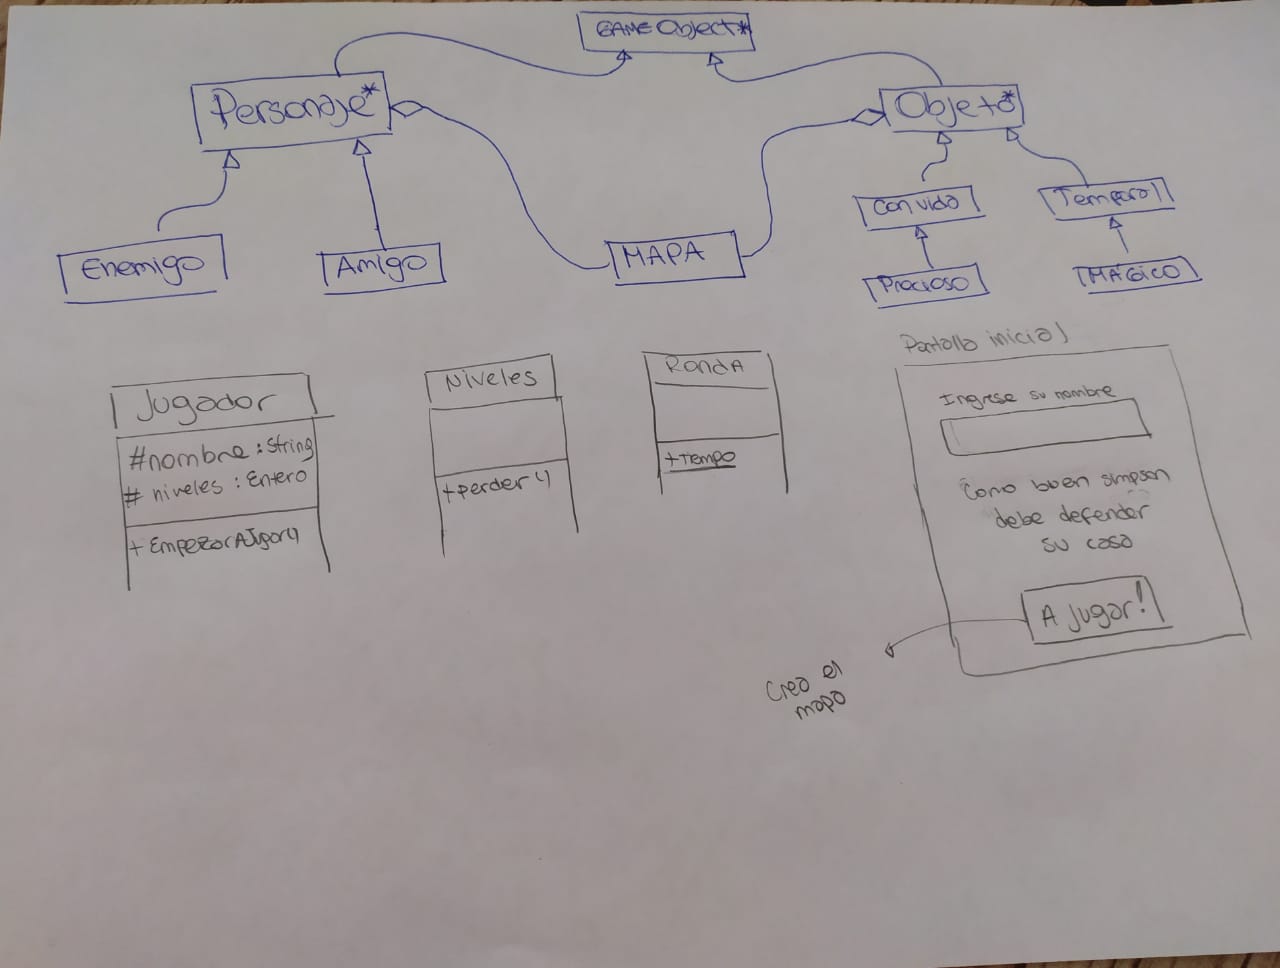 GAMEObject*
Personaje*
Objeto*
Enemigo
Amigo
MAPA
Convida
Temporal
Precioso
MÁGICO
Jugador
#nombre : String
# niveles : Entero
+ EmpezarAJgar()
Niveles
+perder()
RondA
+Tempo
Pantalla inicial
Ingrese su nombre
Como buen simpson
debe defender
su casa
A jugar!
Crea el
mapa